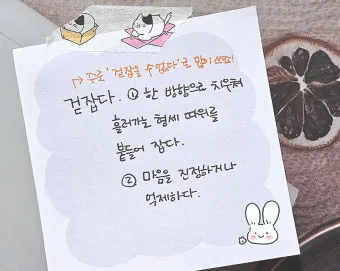 ↱ 주로 '걷잡을 수 없다'로 많이 쓰요!
걷잡다. ① 한 방향으로 치우쳐
흘러가는 형세 따위를
붙들어 잡다.
② 마음을 진정하거나
억제하다.